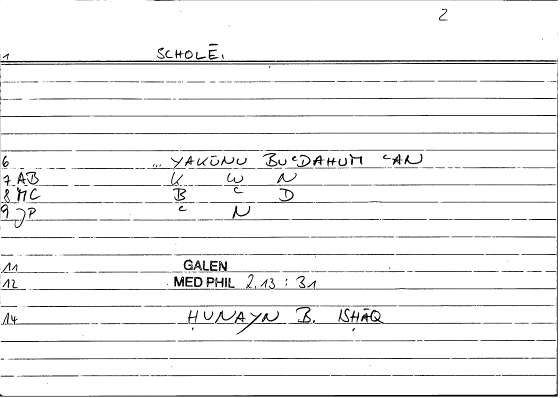 2
1 SCHOLĒ.
6 ... YAKŪNU BUʿDAHUM ʿAN
7 AB K W N
8 MC B ʿ D
9 JP ʿ N
11 GALEN
12 MED PHIL 2.13 : 31
14 ḤUNAYN B. ISḤĀQ